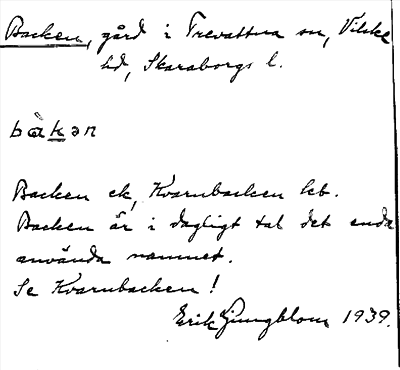 Backen, gård i Trevattna sn, Vilske
hd, Skaraborgs l.
bàkən
Backen ek, Kvarnbacken kb.
Backen är i dagligt tal det enda
använda namnet.
Se Kvarnbacken!
Erik Ljungblom 1939.